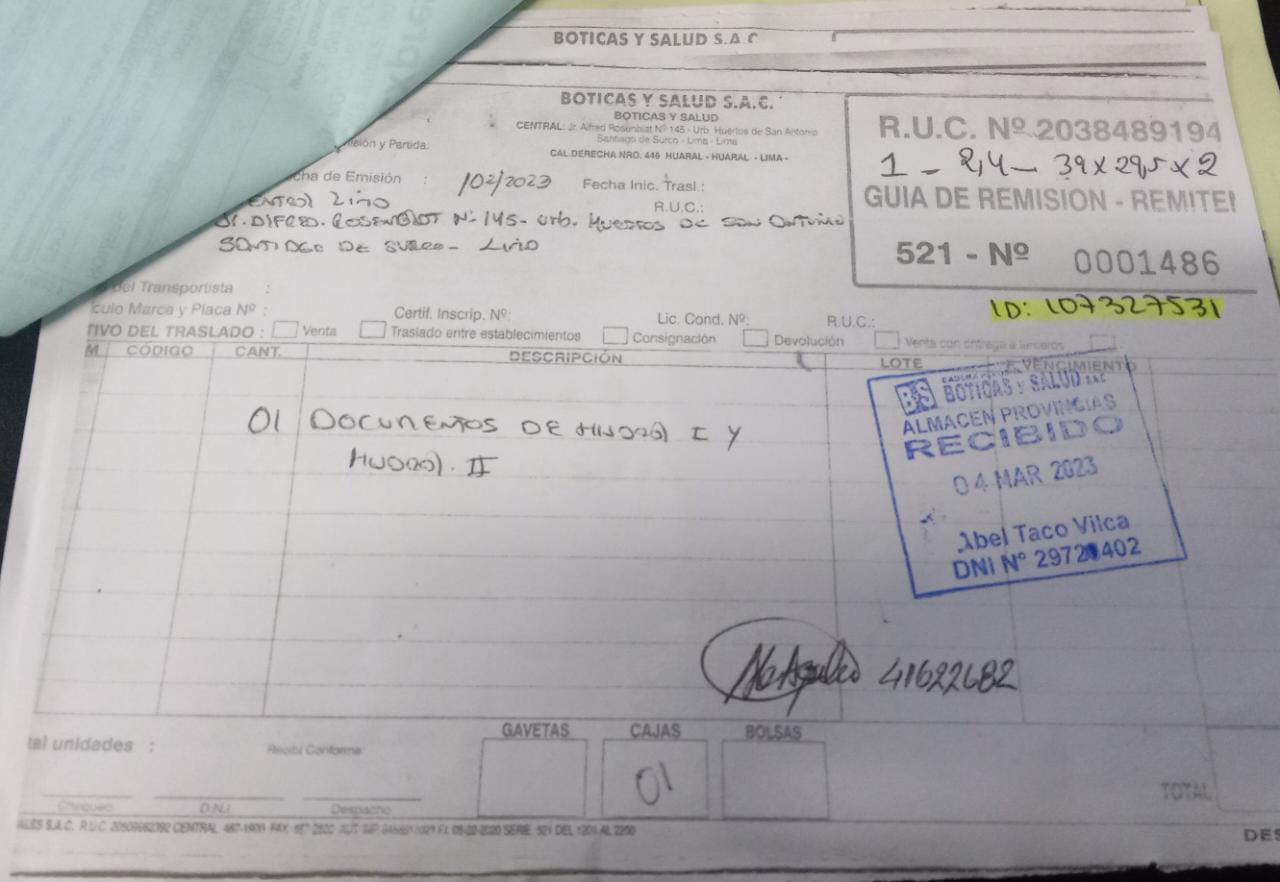 BOTICAS Y SALUD S.A.C
BOTICAS Y SALUD S.A.C.
BOTICAS Y SALUD
CENTRAL: Jr. Alfred Rosenblat Nº 145 - Urb. Huertos de San Antonio
Santiago de Surco - Lima - Lima
CAL.DERECHA NRO. 446 HUARAL - HUARAL - LIMA -
R.U.C. Nº 2038489194
1 - 2,4 - 39 x 29,5 x 2
GUIA DE REMISION - REMITE
521 - Nº 0001486
ID: 107327531
y Partida:
cha de Emisión : /02/2023 Fecha Inic. Trasl.:
R.U.C.:
N- 145 - Urb. HUERTOS DE SAN
DE SURCO -
del Transportista :
culo Marca y Placa Nº : Certif. Inscrip. Nº: Lic. Cond. Nº: R.U.C.:
TIVO DEL TRASLADO : Venta Traslado entre establecimientos Consignación Devolución Venta con entrega a terceros
M CÓDIGO CANT. DESCRIPCIÓN LOTE VENCIMIENTO
01 DOCUMENTOS DE I Y
II
BS BOTICAS Y SALUD SAC
ALMACEN PROVINCIAS
RECIBIDO
04 MAR 2023
Abel Taco Vilca
DNI Nº 2972 402
41622682
GAVETAS CAJAS BOLSAS
01
tal unidades : Recibí Conforme
Chequeo D.N.I. Despacho
TOTAL
ALES S.A.C. R.U.C. CENTRAL SERIE 521 DEL 1201 AL 2200
DES